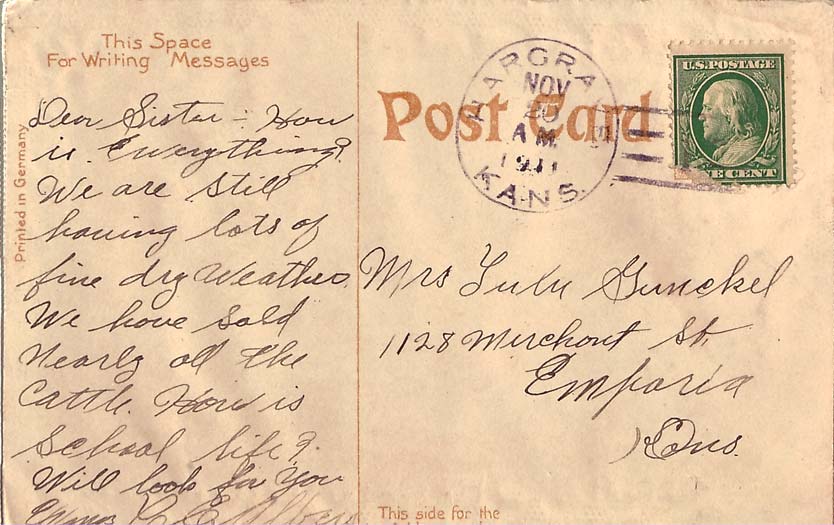 This Space
For Writing Messages
Printed in Germany
Dear Sister - How
is Everything?
We are still
having lots of
fine dry Weather.
We have sold
nearly all the
Cattle. How is
School life?
Will look for you
Post Card
HARGRAVE
NOV
20
A.M.
1911
KANS.
U.S. POSTAGE
ONE CENT
Mrs Lulu Gunckel
1128 Merchant St,
Emporia
Kans.
This side for the